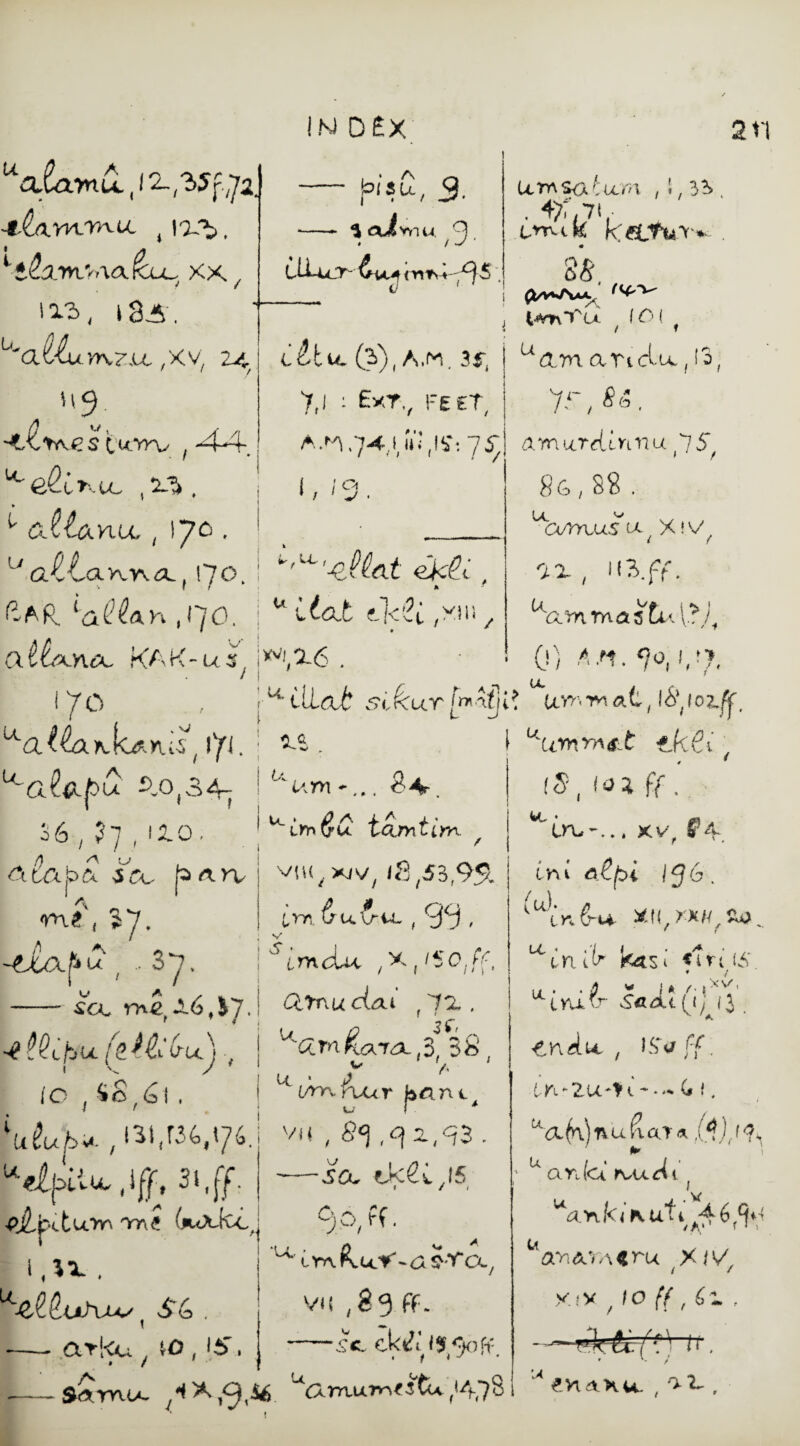 INDEX 211
ᵘalamû, 12, 35f, 72
elammu, 123.
ⁱelammaku, XX,
123, 185.
ᵘallumzu, XV, 24
119
elmeštum, 44.
ᵘelinu, 23.
ⁱallanu, 170.
ᵘallanna, 170.
GAR ⁱallan, 170.
allana KAK-uš,
170
ᵘallankaniš, 171.
ᵘalapû 20, 34,
36, 37, 120.
alapâ ša pan
mê, 37.
elapû, 37.
—— ša mê, 26, 37.
ellipu (ellibu),
10, 58, 61.
ⁱulupu, 131, 136, 176.
ᵘelpitu, 1ff, 31, ff.
elpitum mê
1, 32.
ᵘellu, 56.
—— arku, 10, 15.
—— sâmu, 9, 56
—— pisû, 9.
—— šalmu, 9.
95.
ilṭu (3), A.M. 35,
7, 1 : EXT., FEET,
A.M. 74, 1, iii, 15: 75,
1, 19.
ⁱ,ᵘellat ekli,
ᵘilat ekli, XIII,
XVI, 26.
ᵘillat sikur
28.
ᵘum-... 84.
ᵘimbû tâmtim,
VIII, XIV, 18, 53, 95.
imbubu, 99,
šimdu, X, 150, ff,
amudai, 72.
ᵘamhara, 3, 38,
ᵘimhur pani,
VII, 89, 92, 93.
—— ša ekli, 15,
90, ff.
ᵘimhur-ašra,
VII, 89 ff.
—— ša ekli 15, 90ff.
ᵘamumeštu, 14, 78
umsatum, 1, 33,
47, 71.
88,
101,
ᵘamaridu, 13,
75, 86.
amurdinnu, 75,
86, 88.
ᵘamušu, XIV,
22, 113. ff.
ᵘammaštu(?),
(!) A.M. 90, 1, 17,
ᵘummat, 18, 102. ff.
ᵘummat ekli,
18, 102 ff.
ᵘin-... XV, 84.
ini alpi 196.
⁽ᵘ⁾inbu XII, 20.
ᵘinib kasi
ᵘinib šadi (!), 13.
endu, 150 ff.
in-zu-ti-... 61.
ᵘankinuti, 46, 94
ᵘanameru, XIV,
XIX, 10 ff, 62.
—— ekli (?) 11.
ᵘenanu, 22,